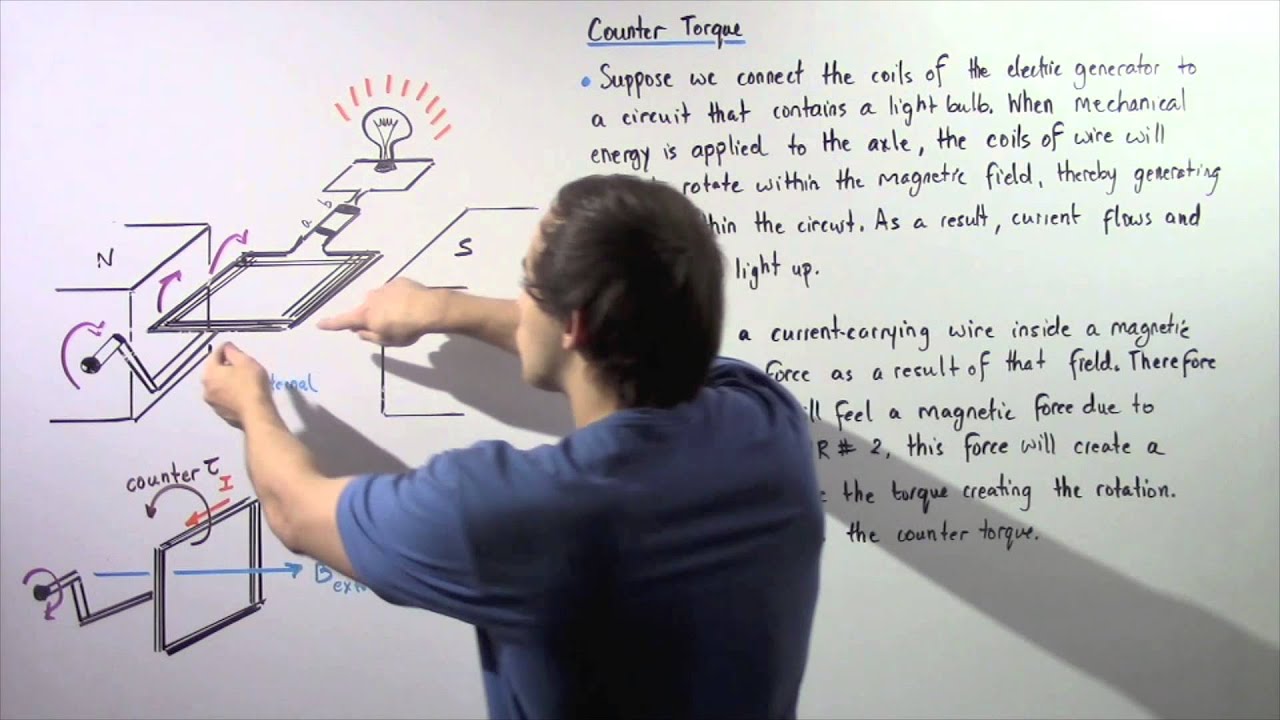 Counter Torque
• Suppose we connect the coils of the electric generator to
a circuit that contains a light bulb. When mechanical
energy is applied to the axle, the coils of wire will
rotate within the magnetic field, thereby generating
the circuit. As a result, current flows and
light up.
a current-carrying wire inside a magnetic
force as a result of that field. Therefore
feel a magnetic force due to
R # 2, this force will create a
the torque creating the rotation.
the counter torque.
b
a
N
S
counter τ
I
B